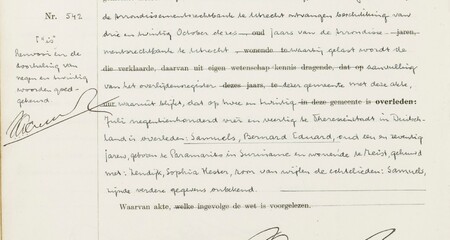 Nr. 542
de Arrondissementsrechtbank te Utrecht ontvangen beschikking van
drie en twintig October dezes oud jaars van de Arrondisse- jaren,
mentsrechtbank te Utrecht wonende te waarbij gelast wordt de
die verklaarde, daarvan uit eigen wetenschap kennis dragende, dat op aanvulling
van het overlijdensregister dezes jaars, te dezer gemeente met deze akte,
uur waaruit blijkt, dat op twee en twintig in deze gemeente is overleden:
Juli negentienhonderd vier en veertig te Theresienstadt in Duitsch-
land is overleden: Samuels, Bernard Eduard, oud een en zeventig
jaren, geboren te Paramaribo in Suriname en wonende te Zeist, gehuwd
met: Zendijk, Sophia Hester, zoon van wijlen de echtelieden: Samuels,
zijnde verdere gegevens onbekend.
Waarvan akte, welke ingevolge de wet is voorgelezen.
hervooi en de
doorhaling van
negen en twintig
woorden goed-
gekeurd